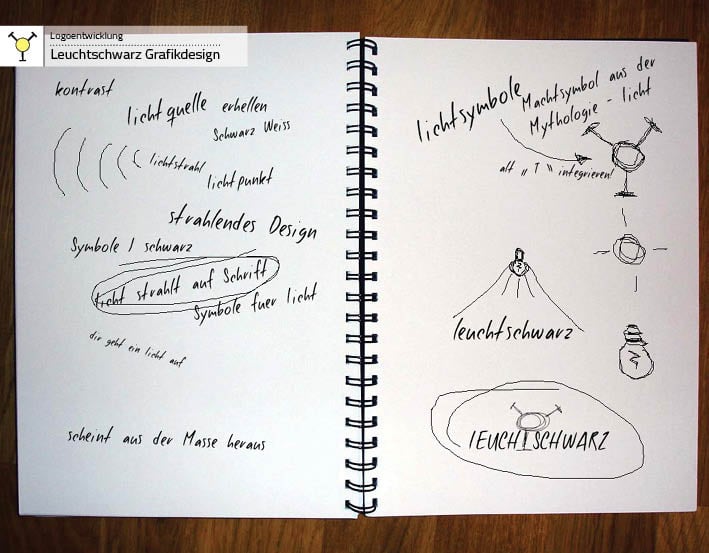 Logoentwicklung
Leuchtschwarz Grafikdesign
kontrast
lichtquelle erhellen
Schwarz Weiss
lichtstrahl
lichtpunkt
strahlendes Design
Symbole / schwarz
licht strahlt auf Schrift
Symbole fuer licht
dir geht ein licht auf
scheint aus der Masse heraus
lichtsymbole
Machtsymbol aus der
Mythologie - licht
als „T“ integrieren!
leuchtschwarz
lEUCHTSCHWARZ